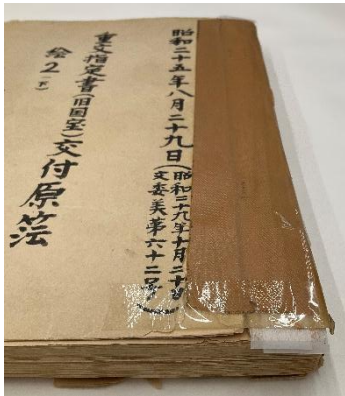 昭和二十五年八月二十九日(昭和二十九年十月二十日
文委美第六十二号)
重文指定書(旧国宝)交付原簿
絵2(下)